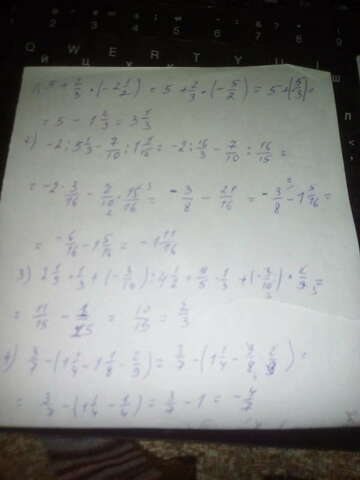 1) 5 + 2/3 · (-2 1/2) = 5 + 2/3 · (-5/2) = 5 + (-5/3) =
= 5 - 1 2/3 = 3 1/3
2) -2 : 5 1/3 - 7/10 : 1 1/15 = -2 : 16/3 - 7/10 : 16/15 =
= -2 · 3/16 - 7/10 · 15/16 = -3/8 - 21/16 = -3/8 - 1 5/16 =
= -6/16 - 1 5/16 = -1 11/16
3) 2 1/5 · 1/3 + (-3/10) : 4 1/2 = 11/5 · 1/3 + (-3/10) · 2/9 =
= 11/15 - 1/15 = 10/15 = 2/3
4) 3/7 - (1 1/4 - 1 1/8 · 2/9) = 3/7 - (1 1/4 - 9/8 · 2/9) =
= 3/7 - (1 1/4 - 1/4) = 3/7 - 1 = -4/7